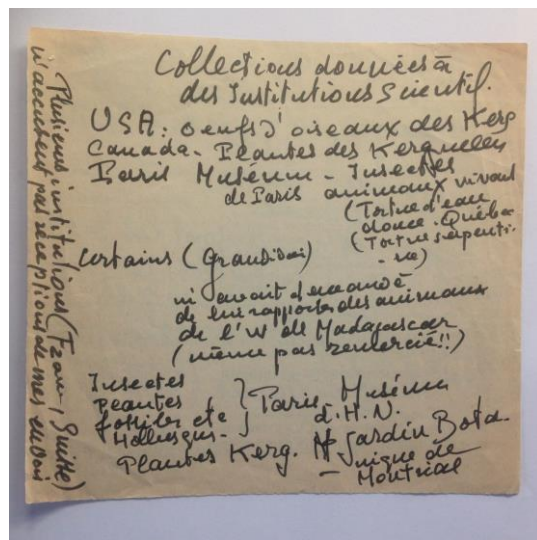 Collections données à
des Institutions Scientif.
USA: oeufs d'oiseaux des Kerg
Canada - Plantes des Kerguelen
Paris Muséum - Insectes
de Paris animaux vivant
(Tortue d'eau
douce - Québec
(Tortue serpenti-
-ne)
Certains (Grandidier)
m'avait demandé
de lui rapporter des animaux
de l'W de Madagascar
(même pas remercié!!)
Insectes
Plantes
fossiles etc
Mollusques -
} Paris Muséum
d'H.N.
Plantes Kerg. Jardin Bota-
nique de
Montréal
Plusieurs institutions (France, Suisse)
n'accusent pas réceptions de mes envois